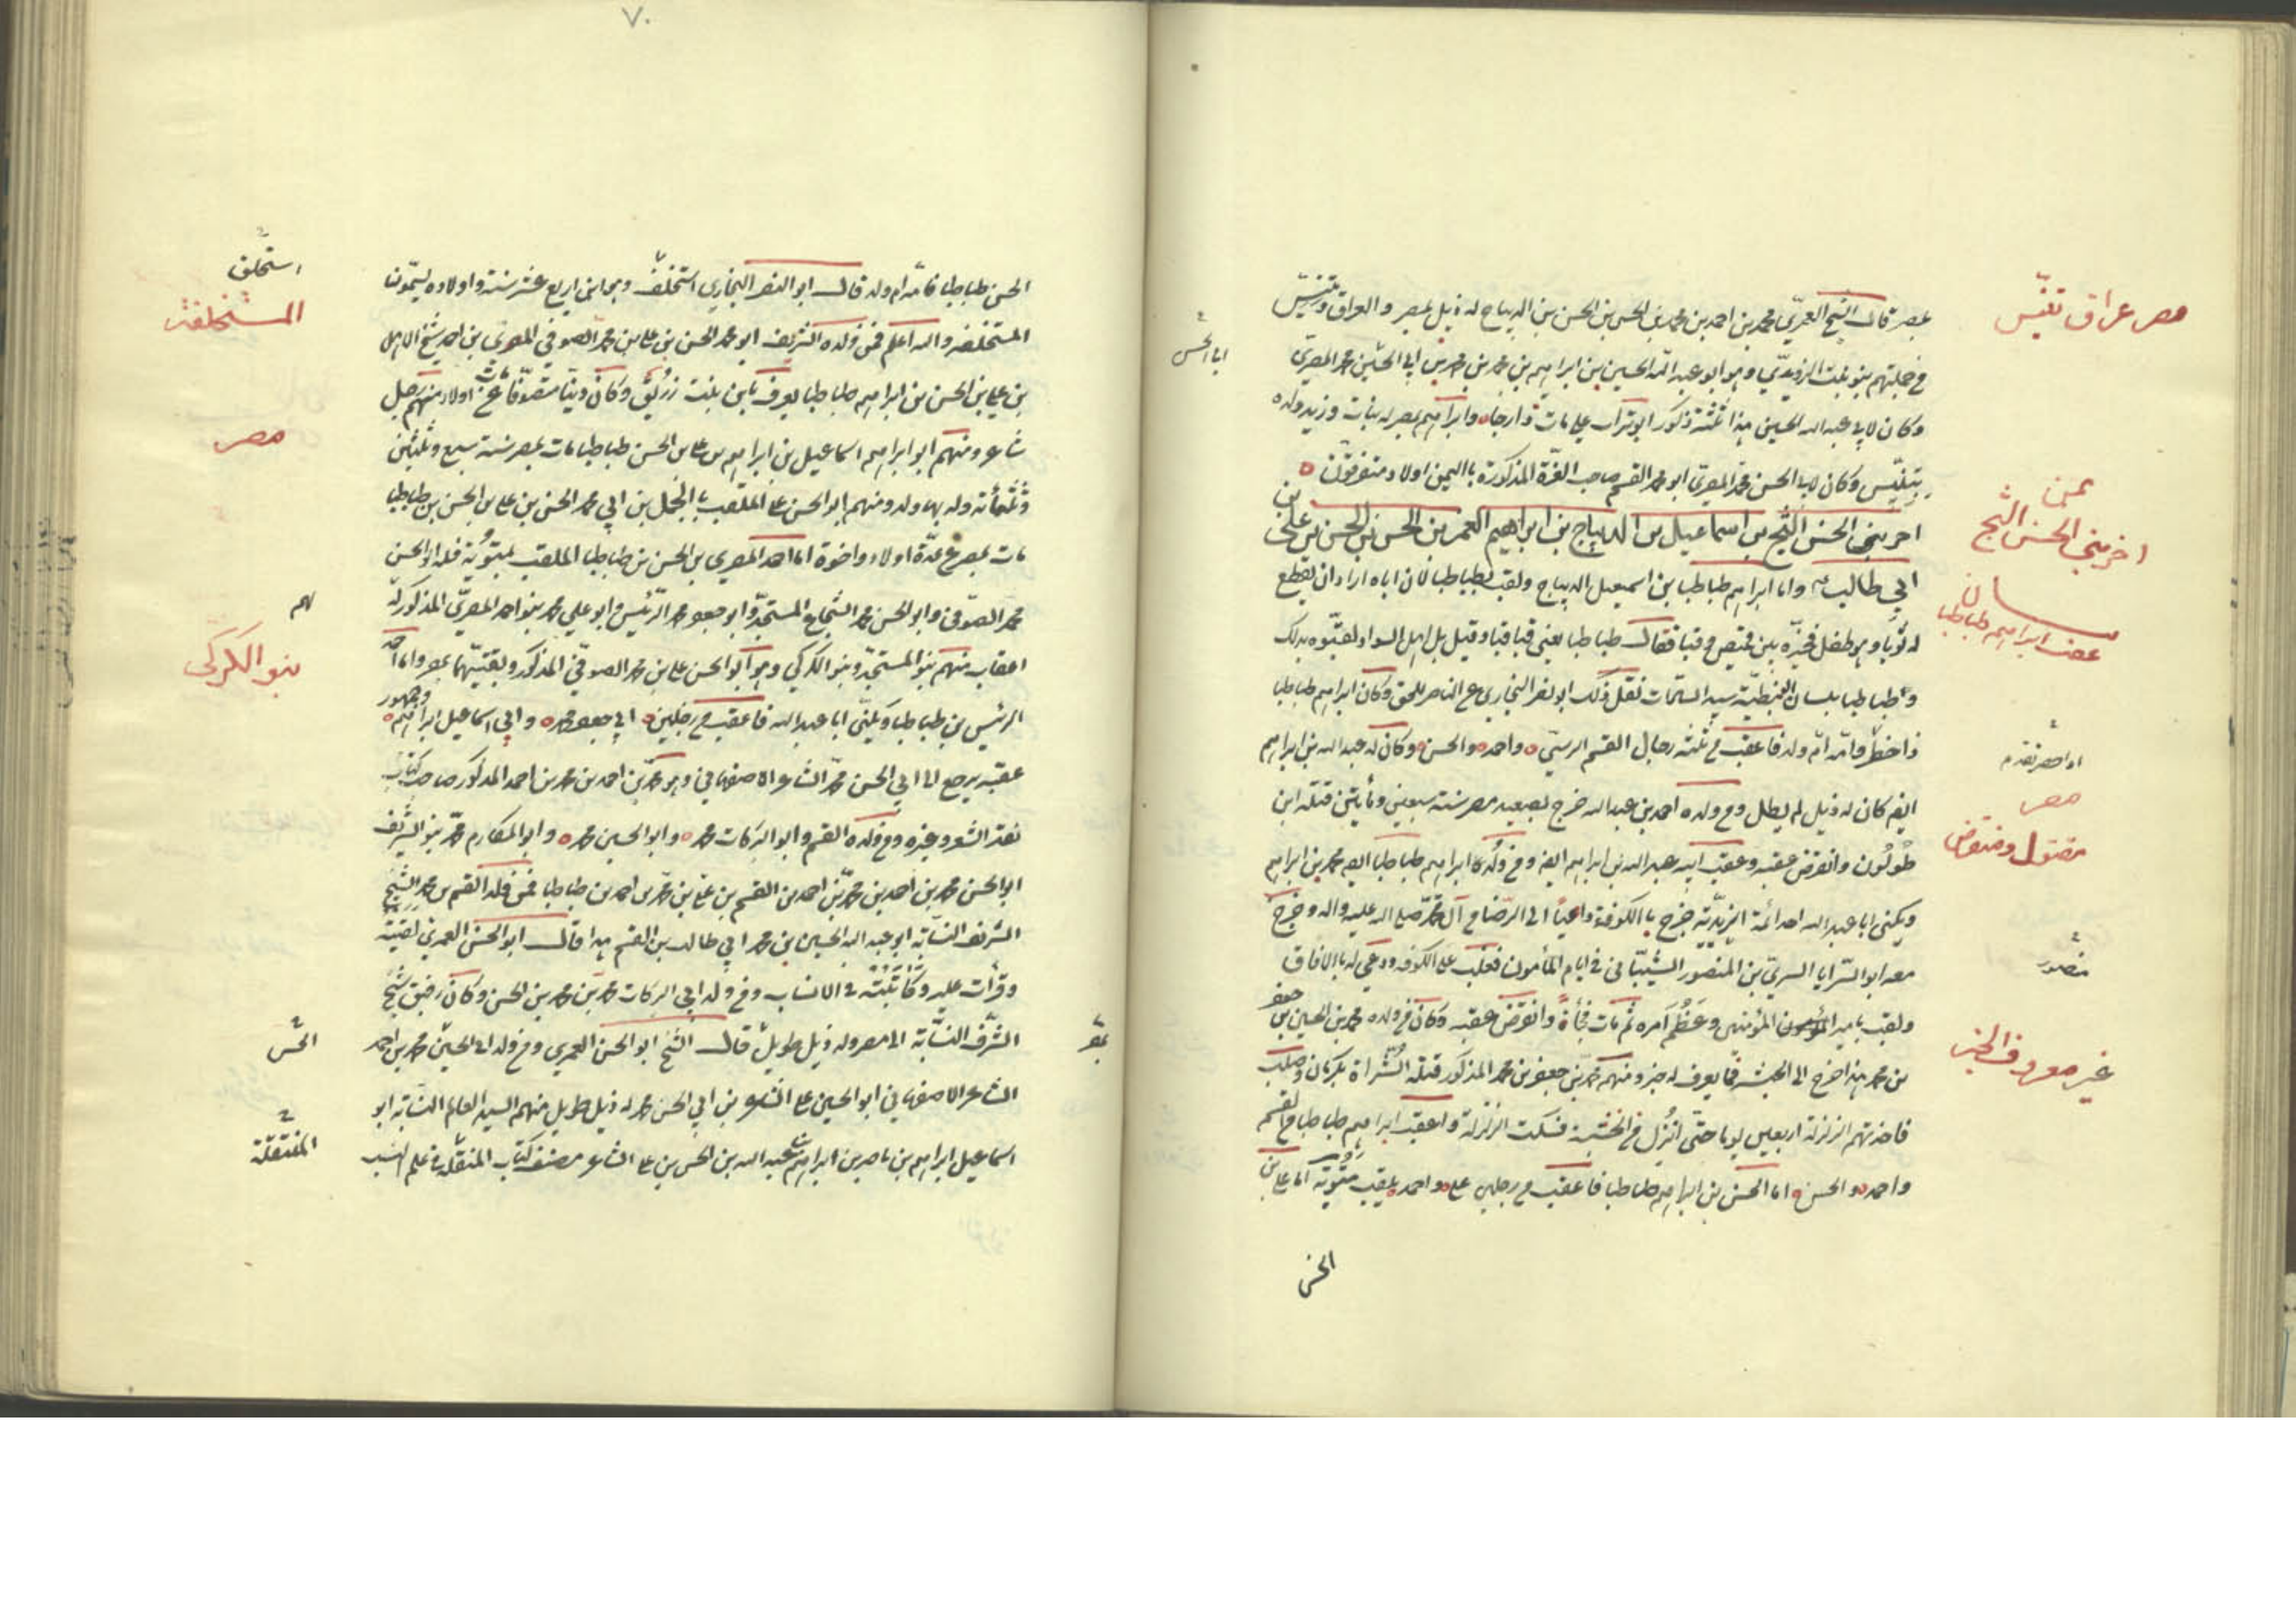 ٧٠
بمصر قال الشيخ العمريّ محمد بن احمد بن محمد بن الحسن بن الحسن بن الديباج له ذيل بمصر والعراق وتنيس
مصر عراق تنيّس
في جملتهم بنو بنت الزيدي وهو ابو عبد الله الحسين بن ابراهيم بن محمد بن محمد بن ابي الحسين محمد المصري
ابا الحسن
وكان لابي عبد الله الحسين هذا ثلثة ذكور ابو تراب علي مات دارجا وابراهيم بمصر له بنات وزيد ولده
بتنيّس وكان لابي الحسن محمد المصري ابو محمد القسم صاحب الغرّة المذكورة باليمن اولاد متفرقون
يمن
اخر بني الحسن التج بن اسماعيل بن الديباج بن ابراهيم الغمر بن الحسن بن الحسن بن علي بن
اخر بني الحسن التج
ابي طالب واما ابراهيم طباطبا بن اسمعيل الديباج ولقب بطباطبا لان اباه اراد ان يقطع
له ثوبا وهو طفل فخيّره بين قميص وقبا فقال طبا طبا يعني قبا قبا وقيل بل اهل السواد لقبوه بذلك
عقب ابراهيم طباطبا
وطباطبا بلسان النبطيّة سيد السادات نقل ذلك ابو نصر البخاري عن الناصر للحق وكان ابراهيم طباطبا
ذا خطر وامّه امّ ولد فاعقب من ثلثة رجال القسم الرسّي واحمد والحسن وكان له عبد الله بن ابراهيم
ايض كان له ذيل لم يطل ومن ولده احمد بن عبد الله خرج بصعيد مصر سنة سبعين ومأيتين فقتله ابن
مصر
طولون وانقرض عقبه وعقب ابيه عبد الله بن ابراهيم ايض ومن ولد ابراهيم طباطبا ايض محمد بن ابراهيم
مقتول ومنقرض
ويكنى ابا عبد الله احد ائمة الزيديّة خرج بالكوفة داعيا الى الرضا من آل محمد صلى الله عليه واله وخرج
معه ابو السّرايا السري بن المنصور الشيباني في ايام المأمون فغلب على الكوفه ودعي له بالافاق
منصور
ولقب بامير المؤمنين وعَظُم امره ثم مات فجأة وانقرض عقبه وكان من ولده محمد بن الحسين بن جعفر
بن محمد هذا خرج الى الحبشه فما يعرف له خبر ومنهم محمد بن جعفر بن محمد المذكور قتلته الشراة بكرمان وصلب
غير معروف الخبر
فاخذتهم الزلزلة اربعين يوما حتّى انزل من الخشبة فسكنت الزلزلة والعقب ابراهيم طباطبا من القسم
واحمد والحسن اما الحسن بن ابراهيم طباطبا فاعقب من رجلين علي واحمد يلقب متويّه اما علي بن
الحسن
الحسن طباطبا فامّه ام ولد قال ابو النصر البخاري استخلف وهو ابن اربع عشر سنة واولاده يسمّون
المستخلفة والله اعلم فمن ولده الشريف ابو محمد الحسن بن علي بن محمد الصوفي المصري بن احمد شيخ الاهل
المستخلفة
بن علي بن الحسن بن ابراهيم طباطبا يعرف بابن بنت زريق وكان ديّنا متصوّفا مات عن اولاد منهم رجل
شاعر ومنهم ابو ابراهيم اسماعيل بن ابراهيم بن علي بن الحسن طباطبا مات بمصر سنة سبع وثلثين
مصر
وثلثمائة وله بها ولد ومنهم ابو الحسن علي الملقب بالجمل بن ابي محمد الحسن بن علي بن الحسن بن طباطبا
مات بمصر عن عدّة اولاد واخوة اما احمد المصري بن الحسن بن طباطبا الملقب بمتويّة فله ابو الحسن
محمد الصوفي وابو الحسن محمد الشجاع المستجدّ وابو جعفر محمد الرّئيس وابو علي محمد بنو احمد المصريّ المذكور له
لهم
اعقاب منهم بنو المستجدّ وبنو الكركي وهو ابو الحسن علي بن محمد الصوفي المذكور وبقيتهما بمصر واما احمد
بنو الكركي
الرئيس بن طباطبا ويكنّى ابا عبد الله فاعقب من رجلين ابي جعفر محمد وابي اسماعيل ابراهيم وجمهور
عقبه يرجع الى ابي الحسن محمد الشاعر الاصفهاني وهو محمد بن احمد بن محمد بن احمد المذكور صاحب كتاب
نقد الشعر وغيره ومن ولده القسم وابو البركات محمد وابو الحسين محمد وابو المكارم محمد بنو الشريف
ابو الحسن محمد بن احمد بن محمد بن احمد بن القسم بن علي بن محمد بن احمد بن طباطبا فمن ولد القسم بن محمد الشيخ
الشريف النسّابه ابو عبد الله الحسين بن محمد ابي طالب بن القسم هذا قال ابو الحسن العمري لقيته
وقرأت عليه وكاتبته في الانساب ومن ولد ابي البركات محمد بن محمد بن الحسن وكان رفيق شيخ
الشرف النسّابة الى مصر وله ذيل طويل قال الشيخ ابو الحسن العمري ومن ولد ابي الحسين محمد بن احمد
الحسن
الشاعر الاصفهاني ابو الحسين علي الشاعر بن ابي الحسن محمد له ذيل طويل منهم السيد العالم النسّابه ابو
اسماعيل ابراهيم بن ناصر بن ابراهيم بن عبد الله بن الحسن بن علي الشاعر مصنف كتاب المنتقلة في علم النسب
المنتقلة